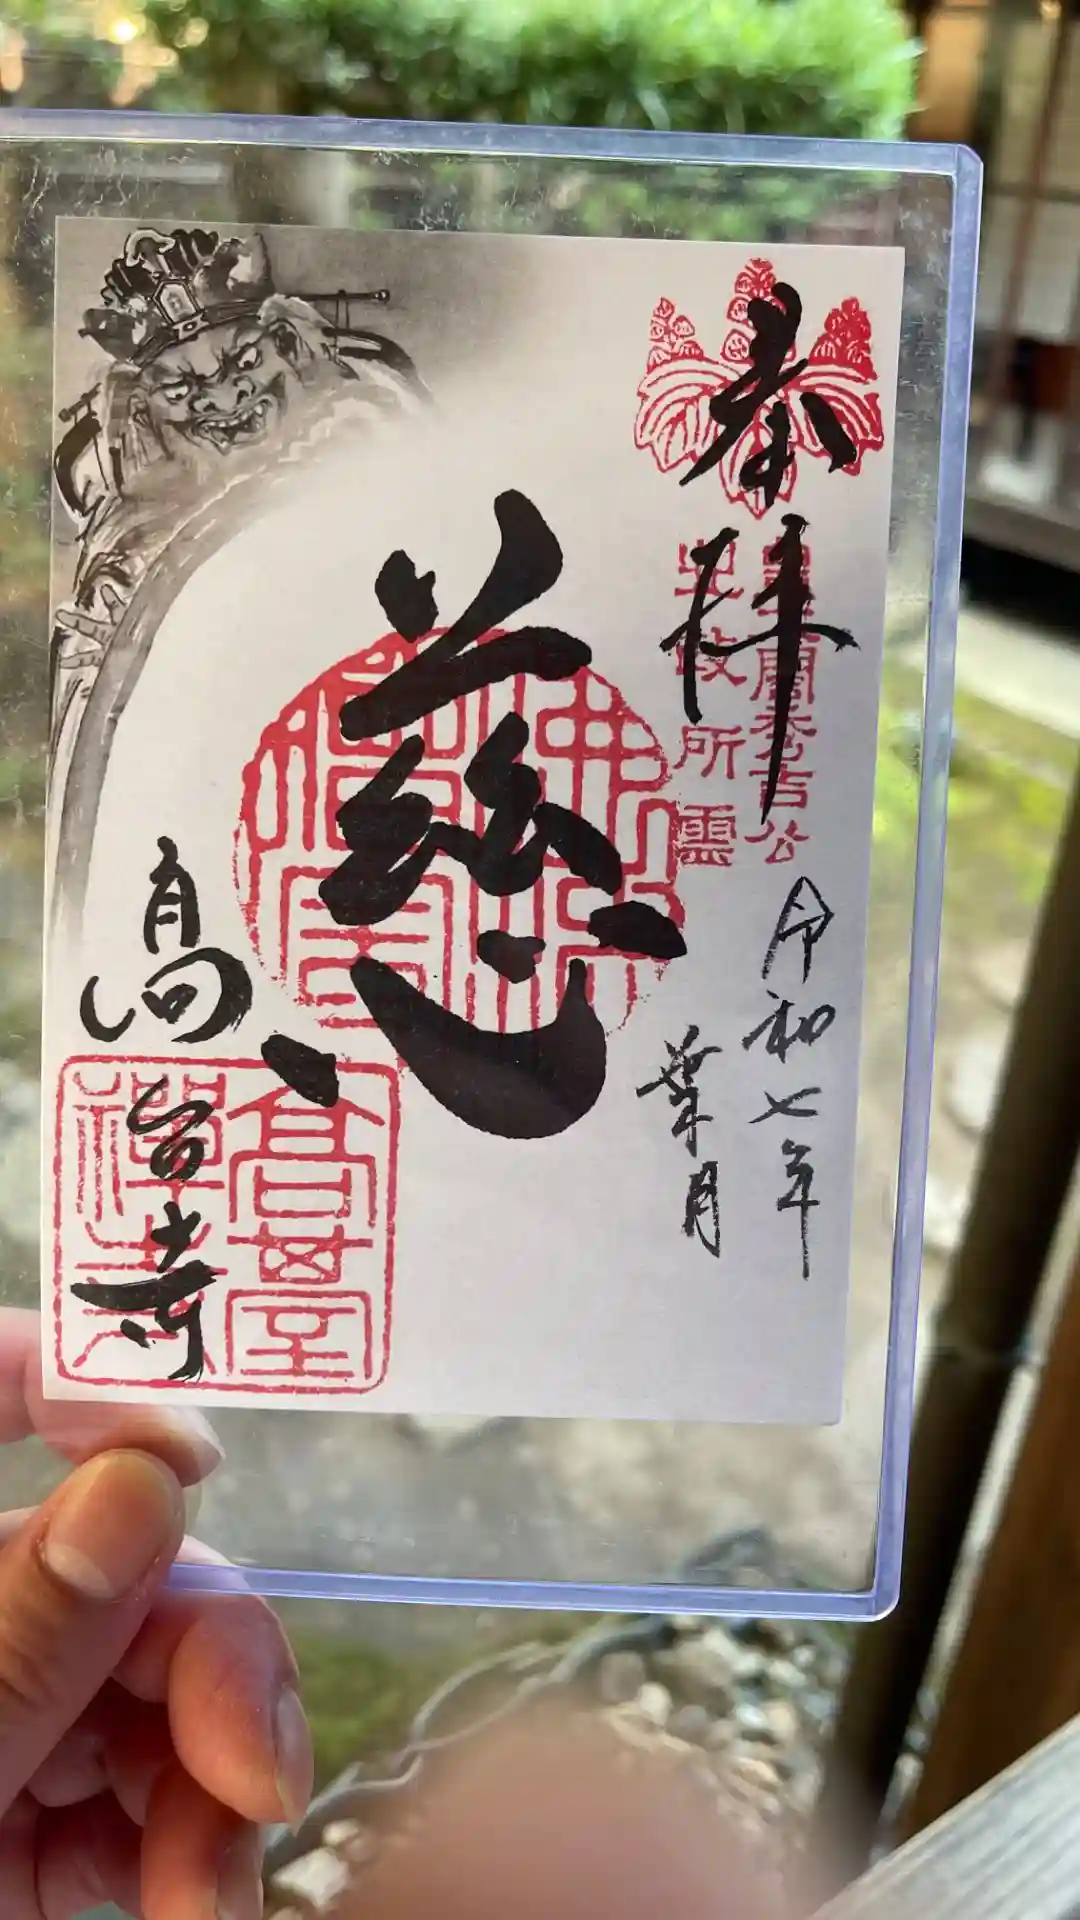 奉拝
豊太閤秀吉公
之政所霊
令和七年
葉月
慈
高台寺
高臺
禅寺